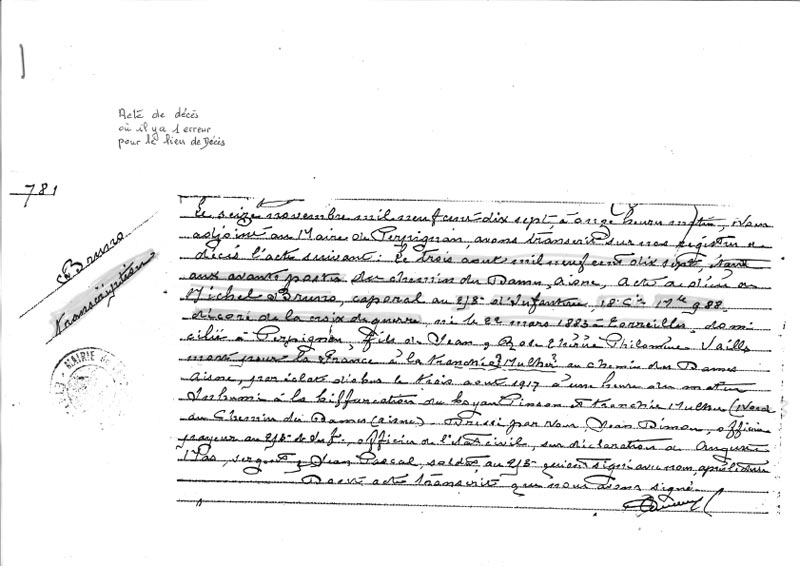 Acte de décès
où il y a 1 erreur
pour le lieu de Décès
781
Bruno
transcription
MAIRIE
Le seize novembre mil neuf cent dix sept à onze heures matin, Nous
adjoint au Maire de Perpignan, avons transcrit sur nos registres de
décès l'acte suivant: Le trois aout mil neuf cent dix sept, étant
aux avants postes du chemin du Dames, aisne, Acte de décès de
Michel Bruno, caporal au 2/3e d'Infanterie, 18e Cie Mle 988
décoré de la croix de guerre, né le 22 mars 1883 à Torreilles, domi
cilié à Perpignan, fils de Jean & Rose Philomène Vaills
mort pour la France à la tranchée Mulher au chemin des Dames
aisne, par éclats d'obus le trois aout 1917 à une heure du matin
Inhumé à la biffurcation du boyau Pinson et tranchée Mulher (Nord
du Chemin des Dames (aisne). Dressé par Nous Jean Dimon, officier
payeur au 2/3e de de Inf., officier de l'état civil, sur déclaration de Auguste
Pas, sergent & Jean Pascal, soldat, au 2/3e qui ont signé avec nous, après lecture
Dont acte transcrit que nous avons signé